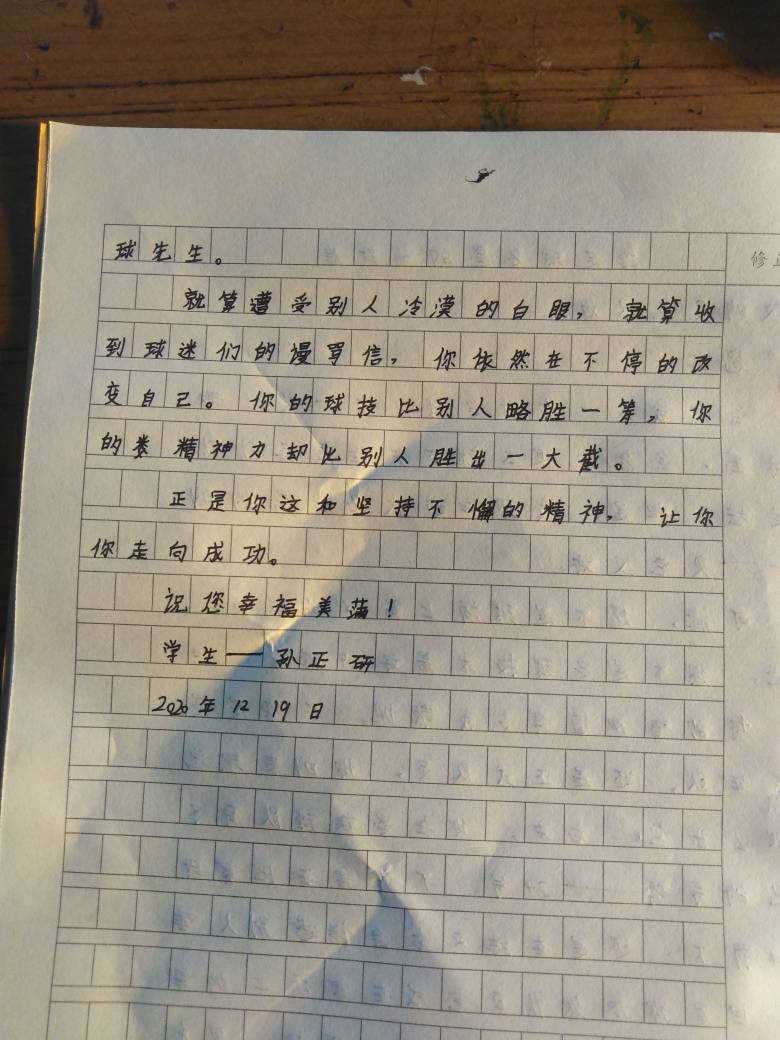 修正
球先生。
就算遭受别人冷漠的白眼，就算收
到球迷们的谩骂信，你依然在不停的改
变自己。你的球技比别人略胜一筹，你
的类精神力却比别人胜出一大截。
正是你这和坚持不懈的精神，让你
你走向成功。
祝您幸福美满！
学生——孙正研
2020年12月19日